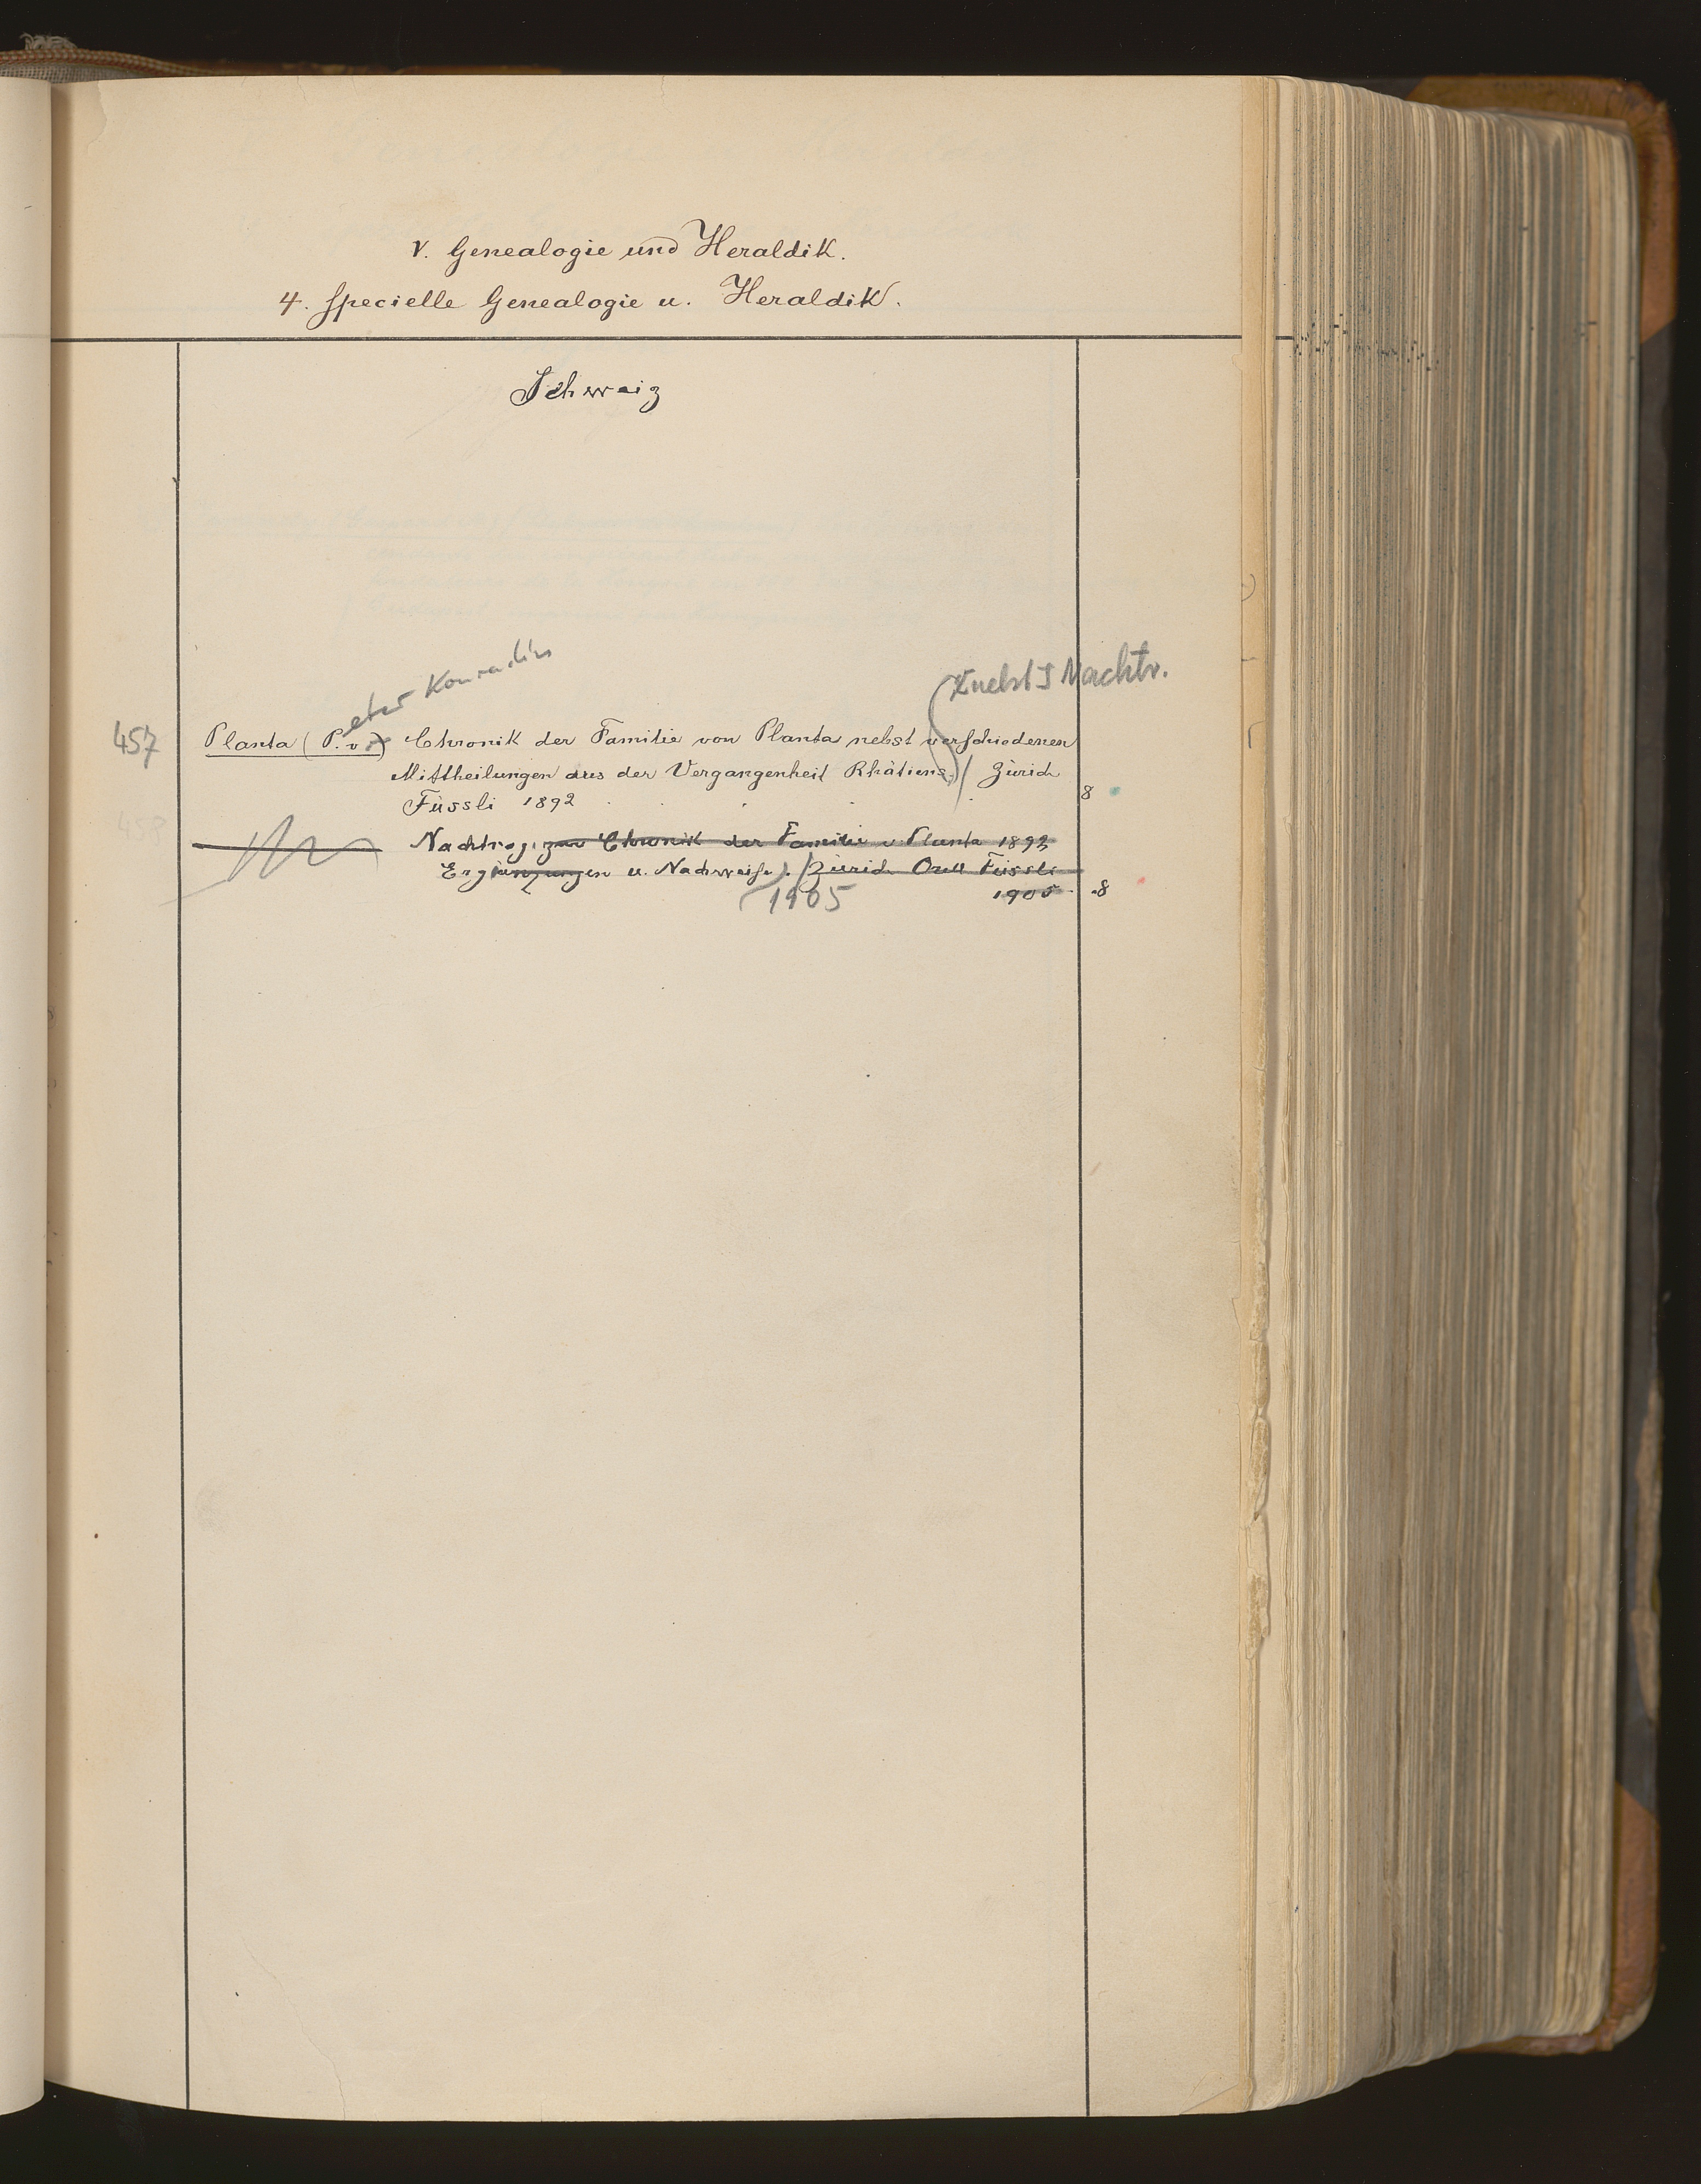 V. Genealogie und Heraldik.
4. Specielle Genealogie u. Heraldik.
Schweiz
eter Konradin
nebst Nachtr.
457 Planta (P. v.) Chronik der Familie von Planta nebst verschiedenen
Mittheilungen aus der Vergangenheit Rhätiens. / Zürich
Füssli 1892 8
458
Nachtrag, zur Chronik der Familie v. Planta 1892
Ergänzungen u. Nachweise). / Zürich Orell Füssli
1905 1905 8